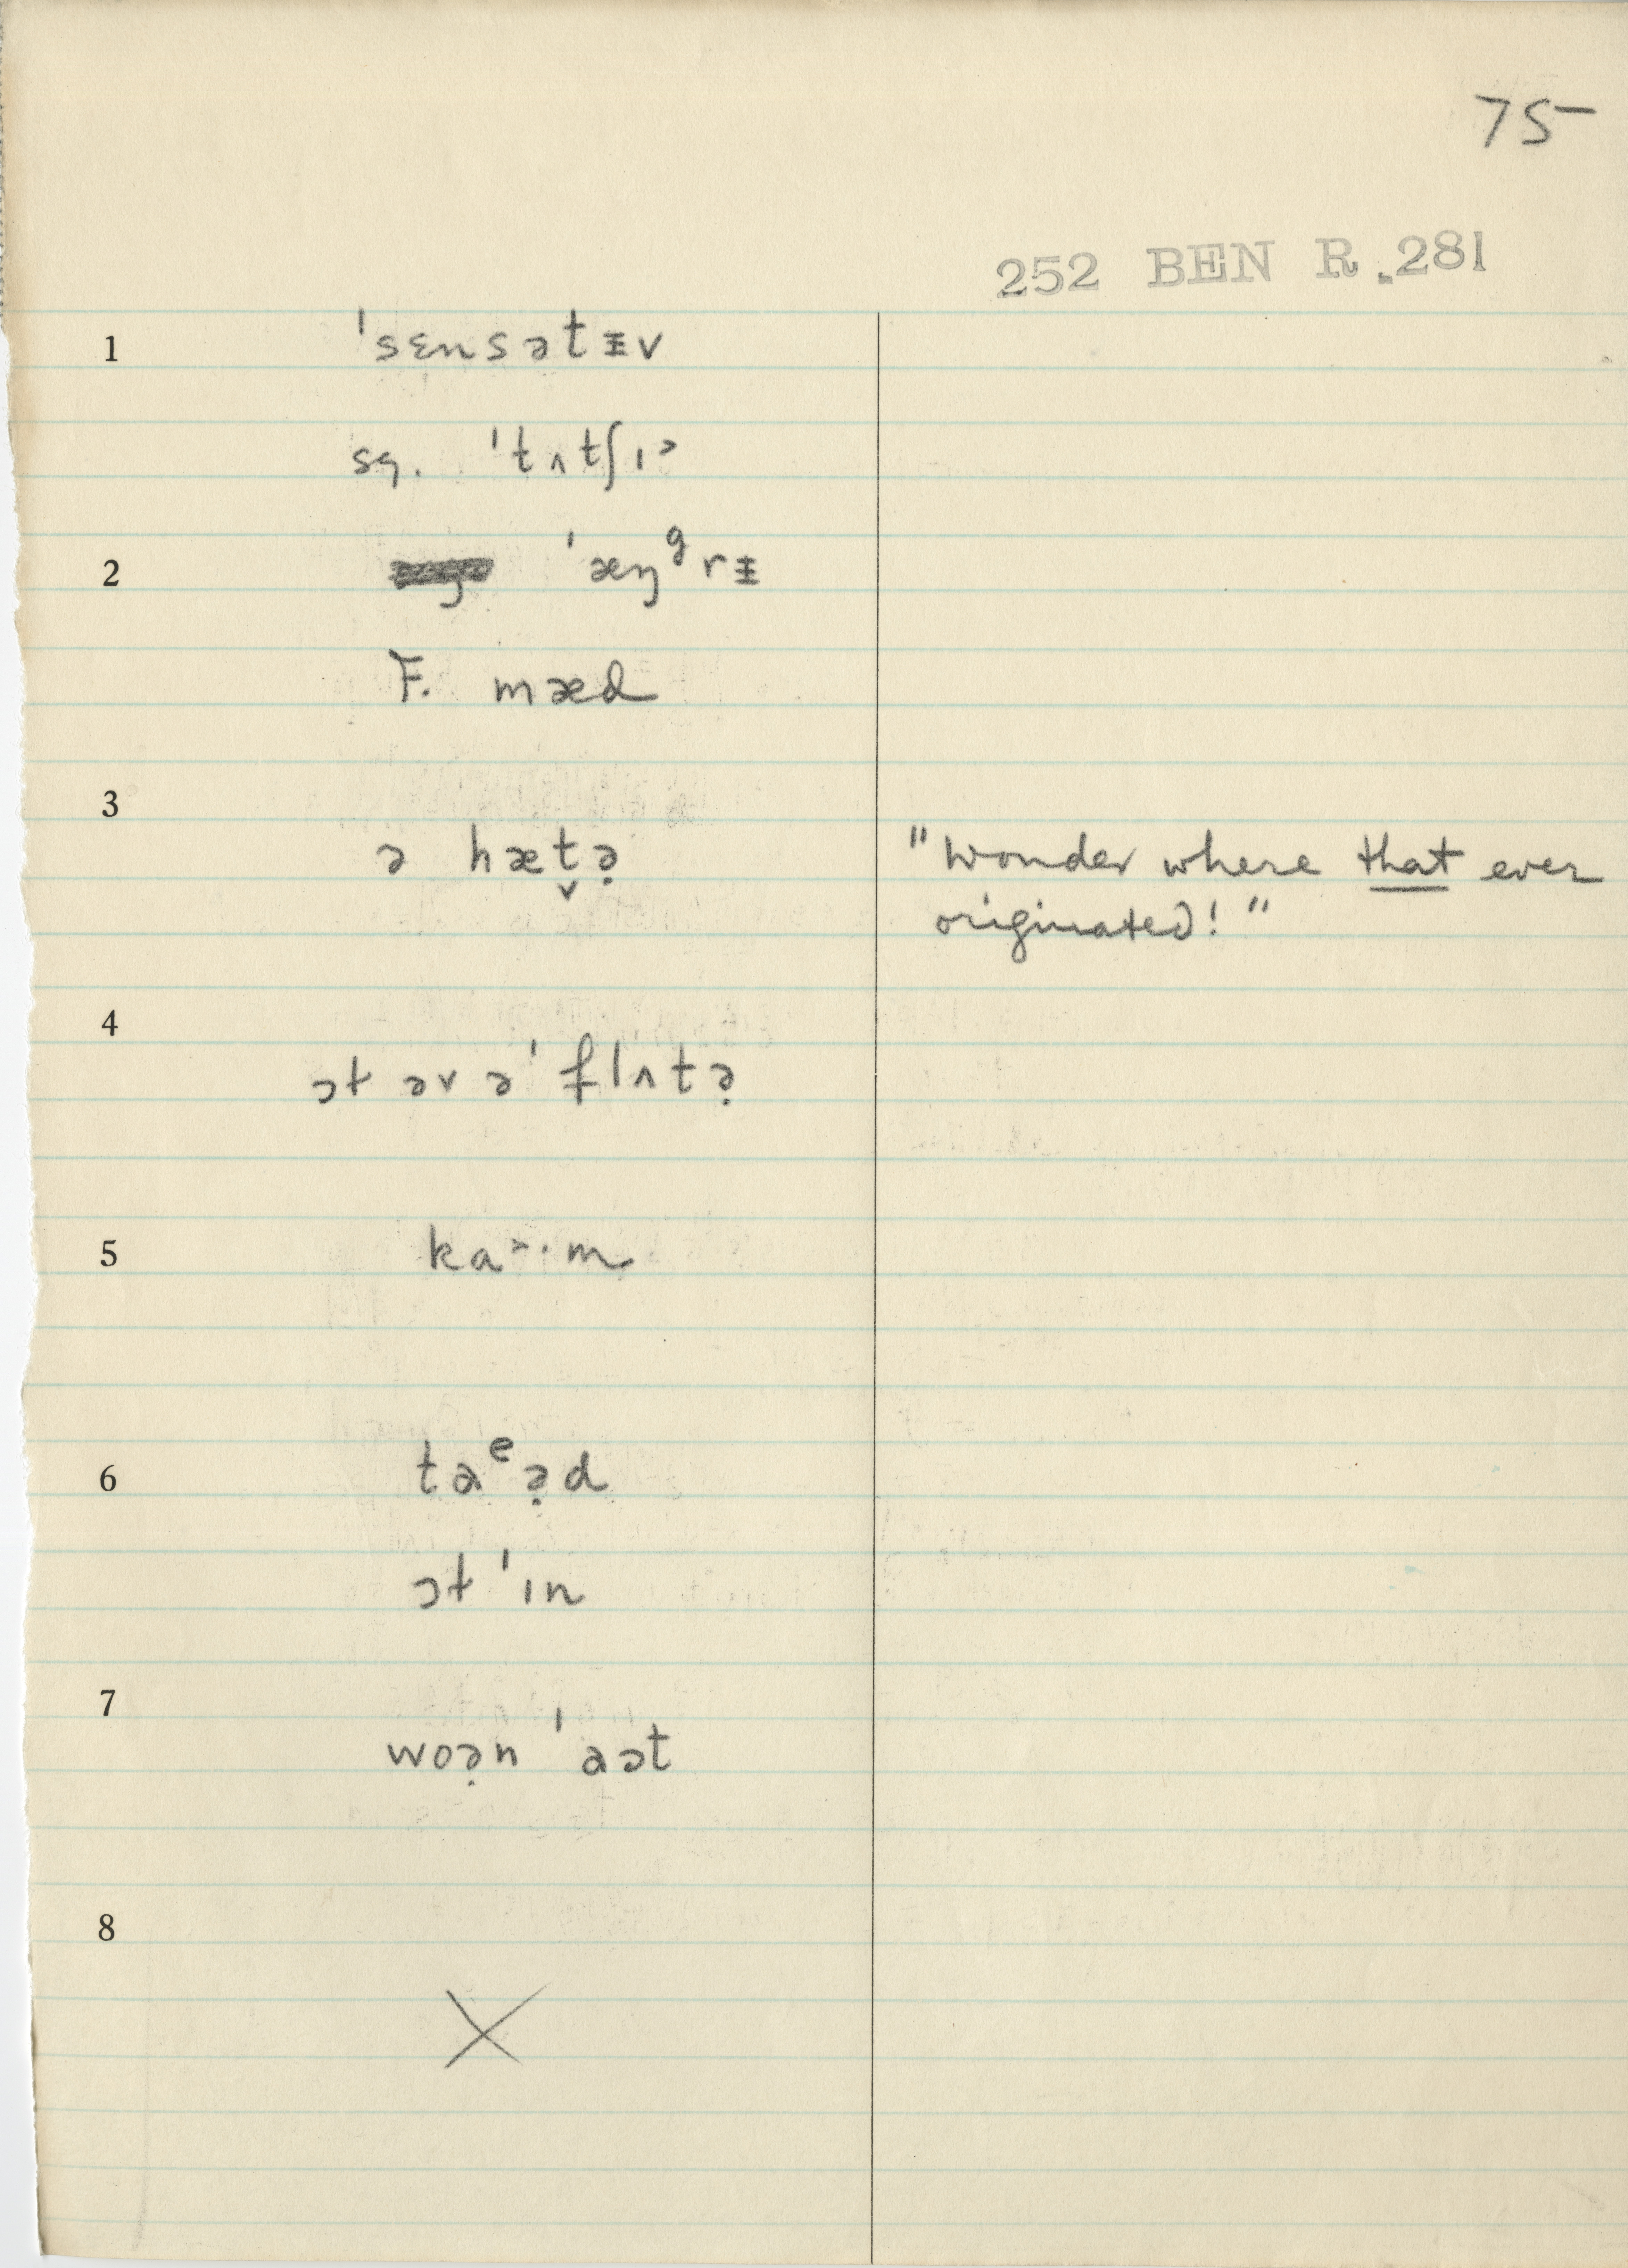 75
252 BEN R .281
1 ˈsɛnsətᵻv
sq. ˈtʌtʃɪ˃
2 ˈæŋᶢrᵻ
F. mæd
3
ə hæt̬ə̣ "Wonder where that ever
originated!"
4
ɔt əv əˈflʌtə̣
5 ka˃·m
6 taᵉə̣d
ɔt ˈɪn
7
woə̣n ˈaɔt
8
X